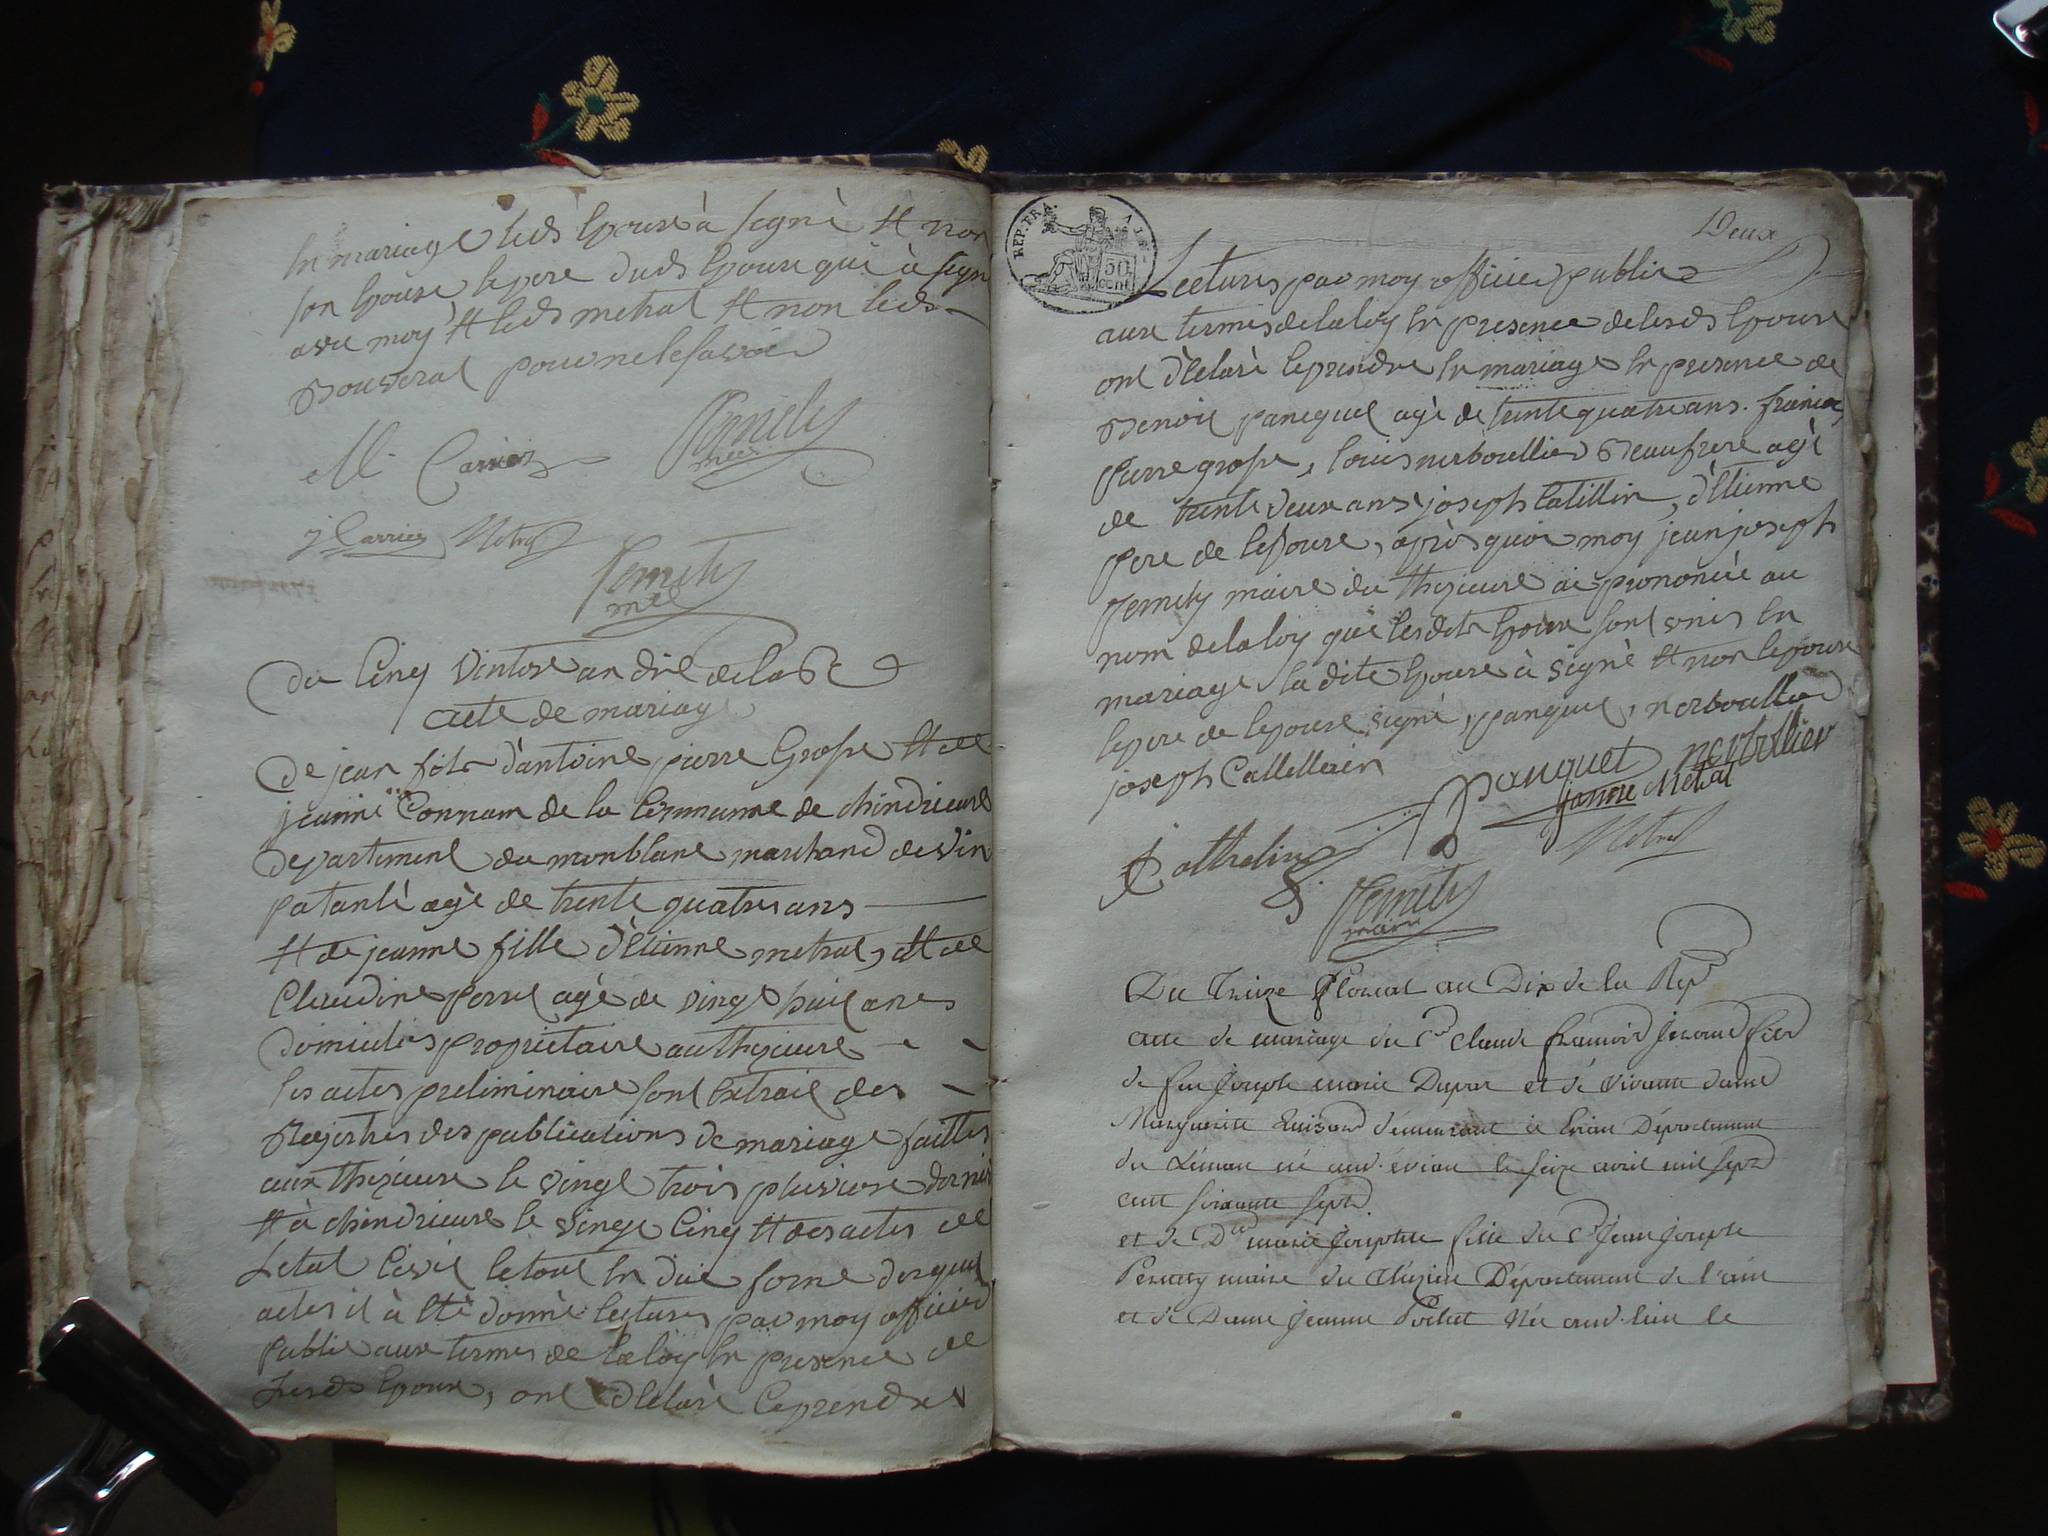 en mariage leds epouse à signè et non
son epouse le pere duds epouse qui à signe
avec moy et leds metral et non leds
pour ne le savoir
M. Carrier
Pernety
mre
j Carrier Metral
Pernety
mre
du cinq ventose an dix de la Re
acte de mariage
de jean fils d'antoine pierre Grosse et de
jeanne Connam de la Commune de chindrieux
departement du monblanc marchand de vin
patantè agè de trente quatre ans
et de jeanne fille d'Etienne metral, et de
Claudine perret agè de vingt huit ans
domicilies proprietaire au thezieure
les actes preliminaire sont extrait des
Rejestres des publications de mariage faittes
aux thezieure le vingt trois pluviose dernier
et à chindrieure le vingt cinq et des actes de
Letat Civil le tout en due forme desquel
actes il à etè donnè lectures par moy officier
public aux termes de la loy en presence de
Lesds epoux, ont declarè ce prendre
Deux
REP. FRA.
50
cent
Lectures par moy officier public
aux termes de la loy en presence de lesds epoux
ont declarè ce prendre en mariage en presence de
Benoit panequet agè de trente quatre ans. francois
pierre grosse, louis nerboullier Beaufrere agè
de trente deux ans joseph Catillin, d'Etienne
pere de lepouse, après quoi moy jean joseph
Pernety maire du thezieure ai prononcèe au
nom de la loy que lesdits epoux sont unis en
mariage la dite epouse à signè et non lepoux
le pere de lepouse signè, panquet, nerboullier
joseph Catellein
panquet nerbollier
janne Metral
J Cathelin Metral
Pernety
maire
Du Treize floreal an Dix de la Rep
acte de mariage du Cn Claude francois Jerome fils
de feu Joseph marie Dupras et de vivante dame
Marguerite demeurant à Evian Département
du Léman né aud. évian le seize avril mil sept
cent soixante sept
et de Dlle marie Josephte fille du Cn Jean Joseph
Pernety maire du thezieu Département de l'ain
et de Dame Jeanne Pochet Née aud. lieu le